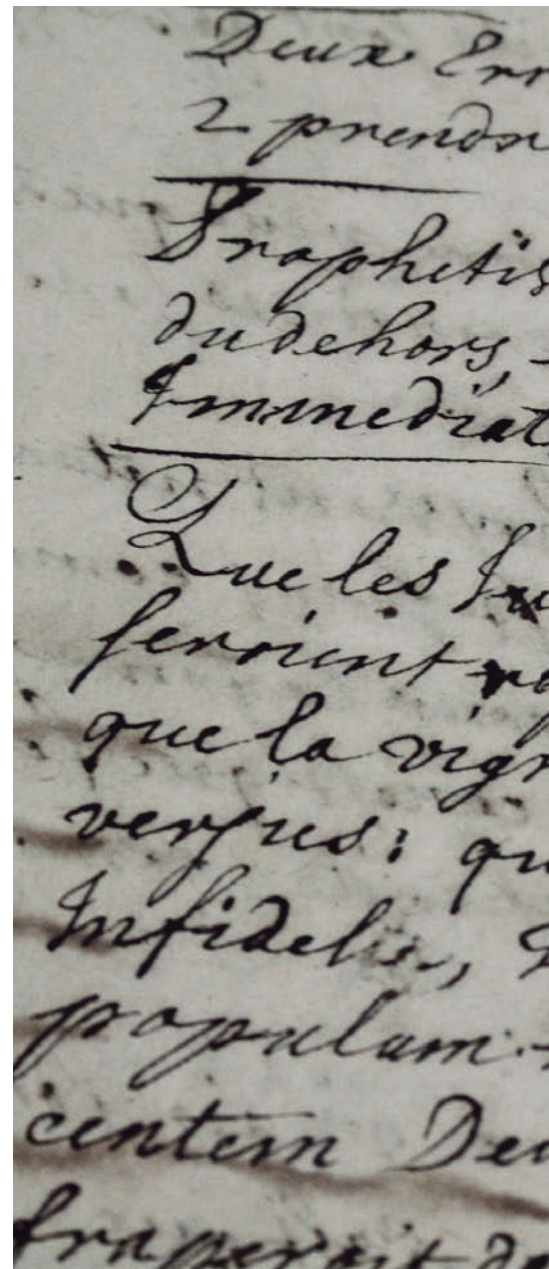 Deux Err
2 prendr
Prophetis
du dehors,
Immediat
Que les Ju
seroient
que la vign
versus: qu
Infidelis,
populum
centem Deu
fraperoit de